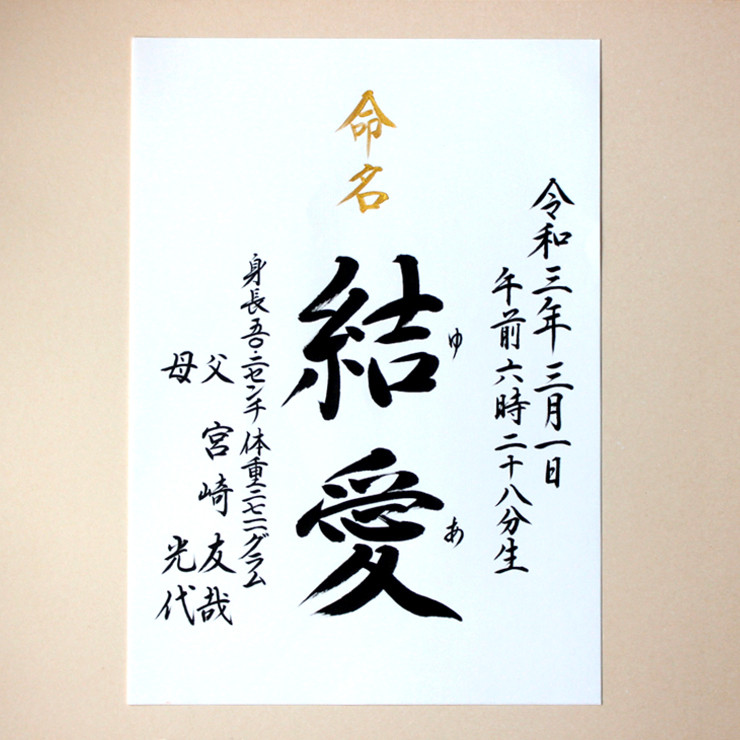 令和三年三月一日
午前六時二十八分生
命名
結愛
ゆ
あ
身長五〇・二センチ 体重二七二一グラム
父 宮崎 友哉
母 光代